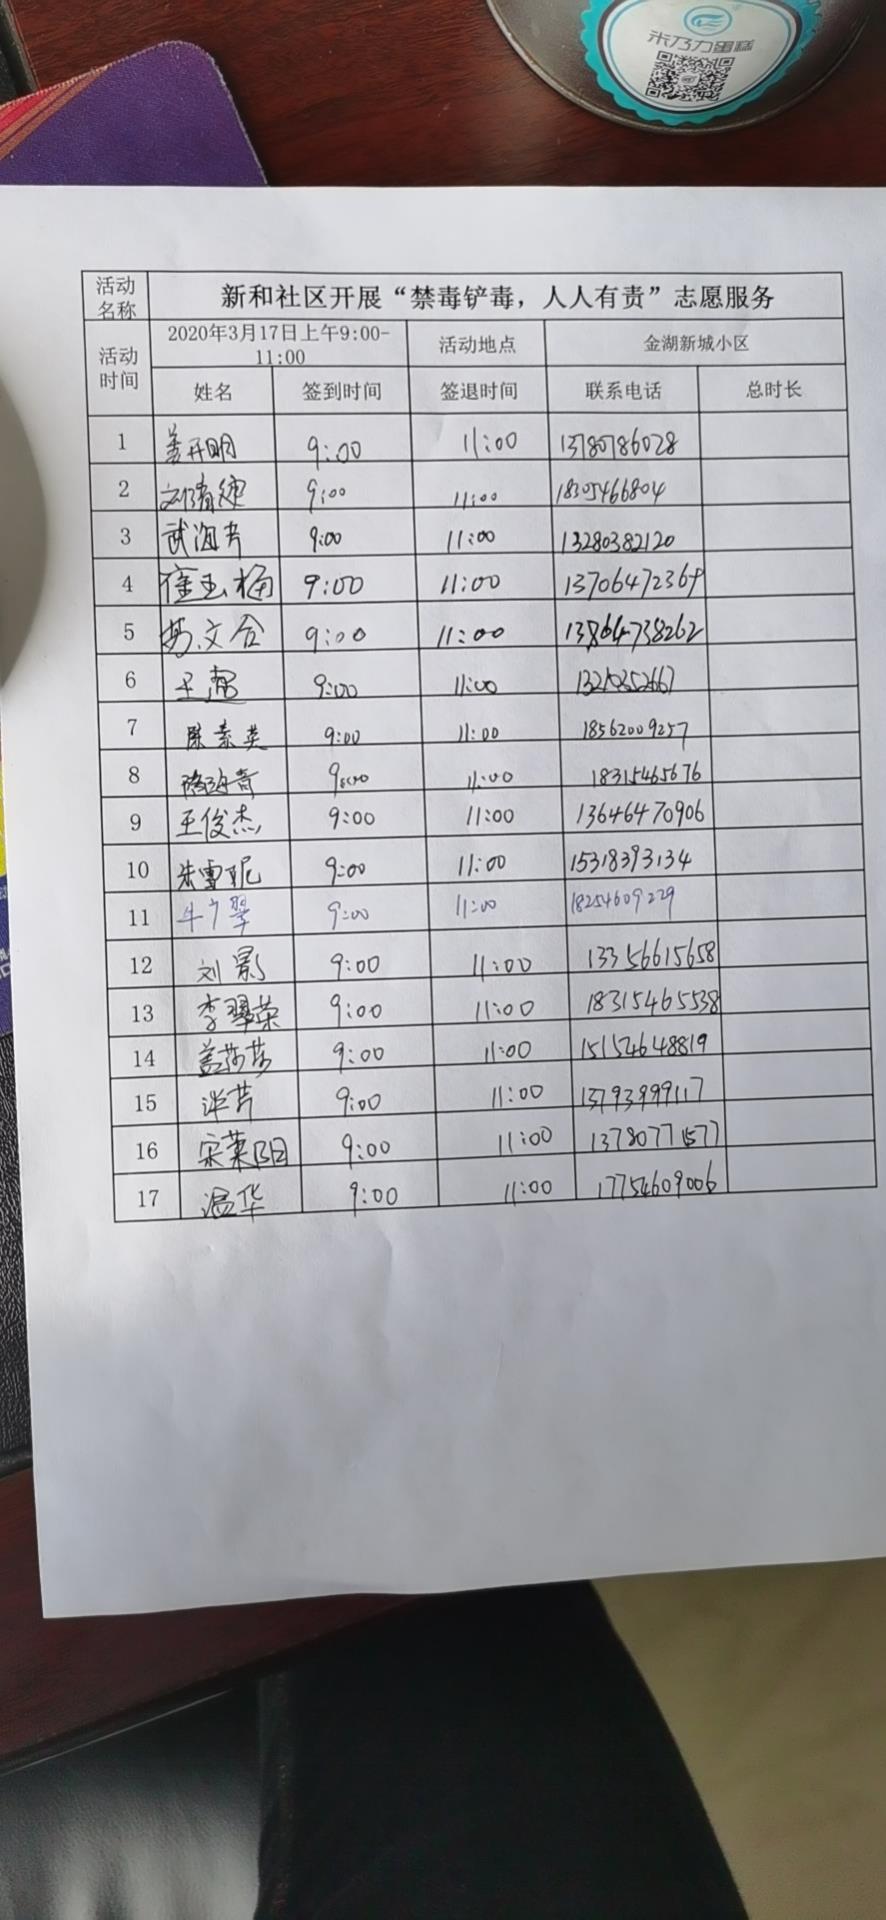 米乃力蛋糕
活动名称 新和社区开展“禁毒铲毒，人人有责”志愿服务
活动时间 2020年3月17日上午9:00-11:00 活动地点 金湖新城小区
姓名 签到时间 签退时间 联系电话 总时长
1 姜开明 9:00 11:00 13780786028
2 9:00 11:00 18305466804
3 武海芳 9:00 11:00 13280382120
4 徐玉梅 9:00 11:00 13706472369
5 苏文合 9:00 11:00 13864738262
6 9:00 11:00
7 陈素英 9:00 11:00 18562009257
8 9:00 11:00 18315465676
9 王俊杰 9:00 11:00 13646470906
10 朱雪妮 9:00 11:00 15318393134
11 9:00 11:00 18254609229
12 刘影 9:00 11:00 13356615658
13 李翠荣 9:00 11:00 18315465538
14 盖莎莎 9:00 11:00 15154648819
15 9:00 11:00 13793999117
16 宋莱阳 9:00 11:00 13780771577
17 温华 9:00 11:00 17754609006